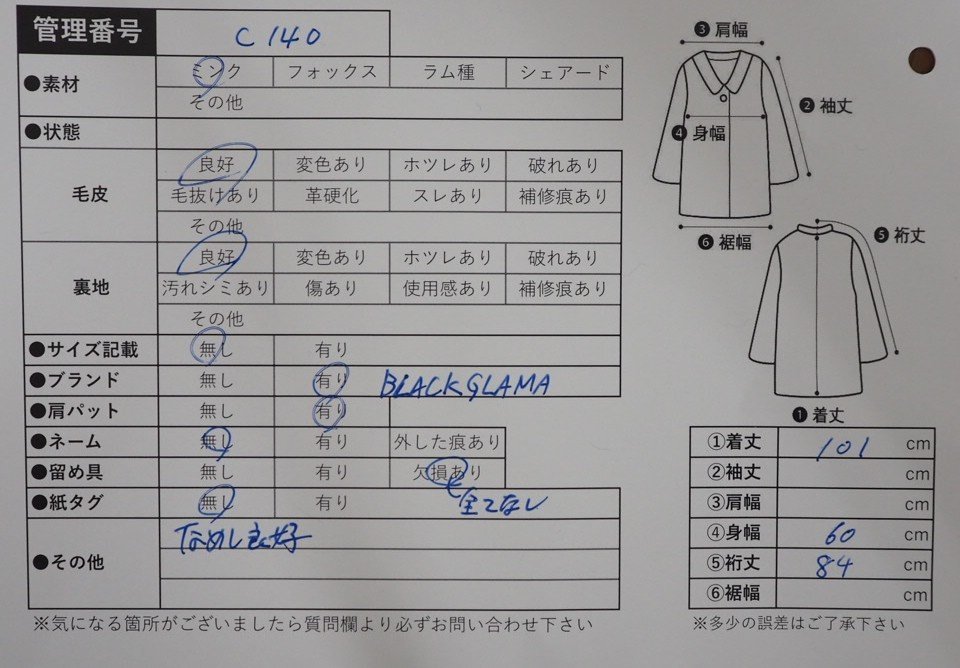 管理番号 C 140
●素材 ミンク フォックス ラム種 シェアード
その他
●状態
毛皮 良好 変色あり ホツレあり 破れあり
毛抜けあり 革硬化 スレあり 補修痕あり
その他
裏地 良好 変色あり ホツレあり 破れあり
汚れシミあり 傷あり 使用感あり 補修痕あり
その他
●サイズ記載 無し 有り
●ブランド 無し 有り BLACKGLAMA
●肩パット 無し 有り
●ネーム 無し 有り 外した痕あり
●留め具 無し 有り 欠損あり
●紙タグ 無し 有り 全てなし
●その他 なめし良好
※気になる箇所がございましたら質問欄より必ずお問い合わせ下さい
❸肩幅
❷袖丈
❹身幅
❻裾幅
❺裄丈
❶着丈
①着丈 101 cm
②袖丈 cm
③肩幅 cm
④身幅 60 cm
⑤裄丈 84 cm
⑥裾幅 cm
※多少の誤差はご了承下さい